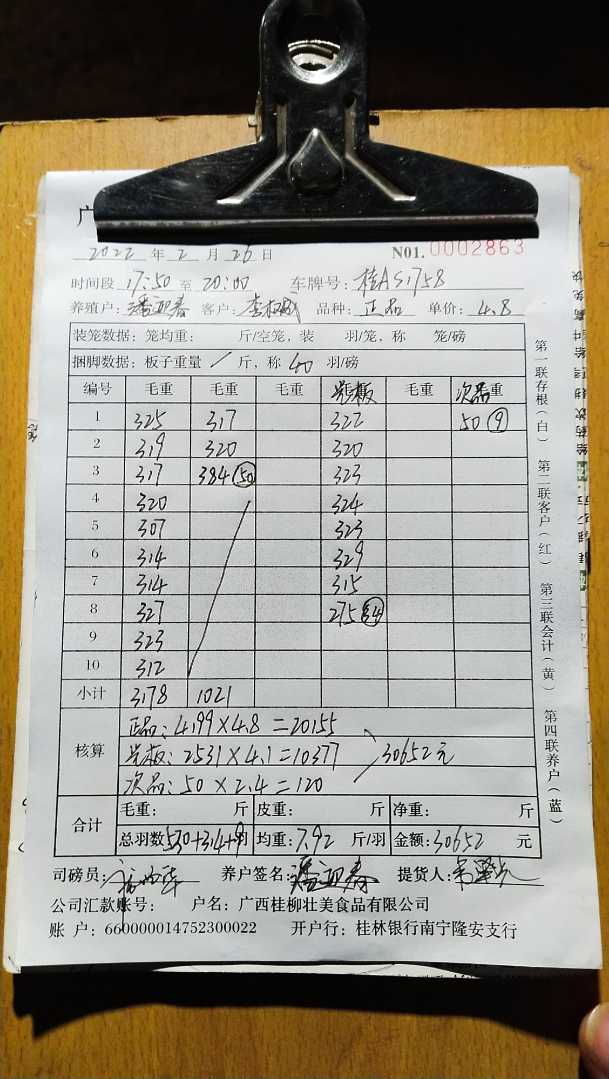 广
2022 年 2 月 26 日 N01. 0002863
时间段 17:50 至 20:00 车牌号: 桂AS1758
养殖户: 潘迎春 客户: 品种: 正品 单价: 4.8
装笼数据: 笼均重: 斤/空笼, 装 羽/笼, 称 笼/磅
捆脚数据: 板子重量 / 斤, 称 40 羽/磅
编号 毛重 毛重 毛重 光板 毛重 次品
1 325 317 322 50 ⑨
2 319 320 320
3 317 384 ㊿ 323
4 320 324
5 307 323
6 314 329
7 314 315
8 327 275 34
9 323
10 312
小计 3178 1021
核算
正品: 4199×4.8=20155
光板: 2531×4.1=10377 30652元
次品: 50×2.4=120
合计
毛重: 斤 皮重: 斤 净重: 斤
总羽数 530+314+9 羽 均重: 7.92 斤/羽 金额: 30652 元
司磅员: 养户签名: 潘迎春 提货人:
公司汇款账号: 户名: 广西桂柳壮美食品有限公司
账 户: 660000014752300022 开户行: 桂林银行南宁隆安支行
第一联存根(白) 第二联客户(红) 第三联会计(黄) 第四联养户(蓝)